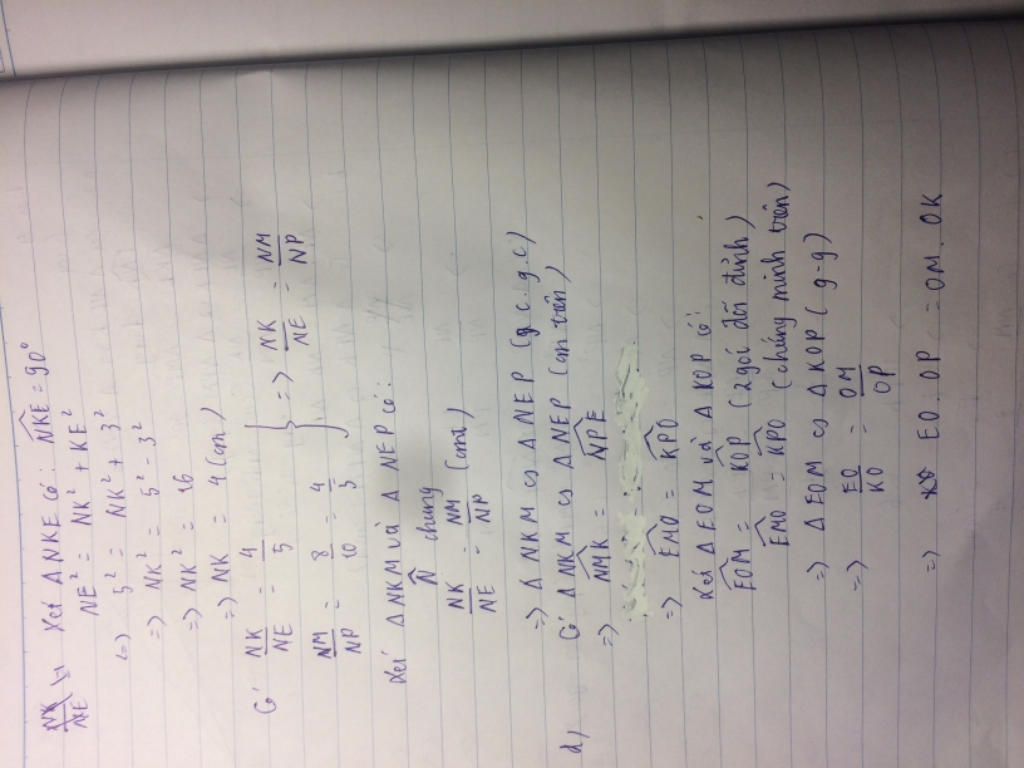 Xét ΔNKE có: \widehat{NKE} = 90°
NE² = NK² + KE²
<=> 5² = NK² + 3²
=> NK² = 5² - 3²
=> NK² = 16
=> NK = 4 (cm)
Có \frac{NK}{NE} = \frac{4}{5}
\frac{NM}{NP} = \frac{8}{10} = \frac{4}{5} } => \frac{NK}{NE} = \frac{NM}{NP}
Xét ΔNKM và ΔNEP có:
\widehat{N} chung
\frac{NK}{NE} = \frac{NM}{NP} (cmt)
=> ΔNKM ∽ ΔNEP (c.g.c)
d, Có ΔNKM ∽ ΔNEP (cm trên)
=> \widehat{NMK} = \widehat{NPE}
=> \widehat{EMO} = \widehat{KPO}
Xét ΔEOM và ΔKOP có:
\widehat{EOM} = \widehat{KOP} (2 góc đối đỉnh)
\widehat{EMO} = \widehat{KPO} (chứng minh trên)
=> ΔEOM ∽ ΔKOP (g-g)
=> \frac{EO}{KO} = \frac{OM}{OP}
=> EO. OP = OM. OK